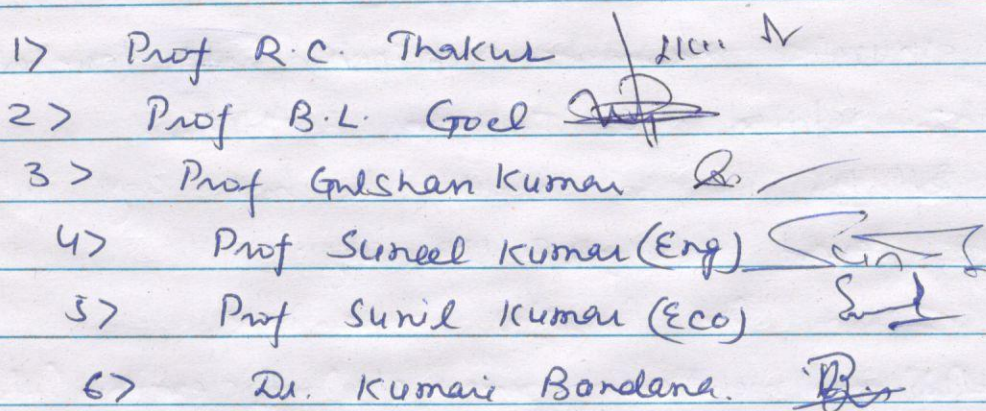 1> Prof R.C. Thakur
2> Prof B.L. Goel
3> Prof Gulshan Kumar
4> Prof Suneel Kumar (Eng)
5> Prof Sunil Kumar (Eco)
6> Dr. Kumari Bandana.